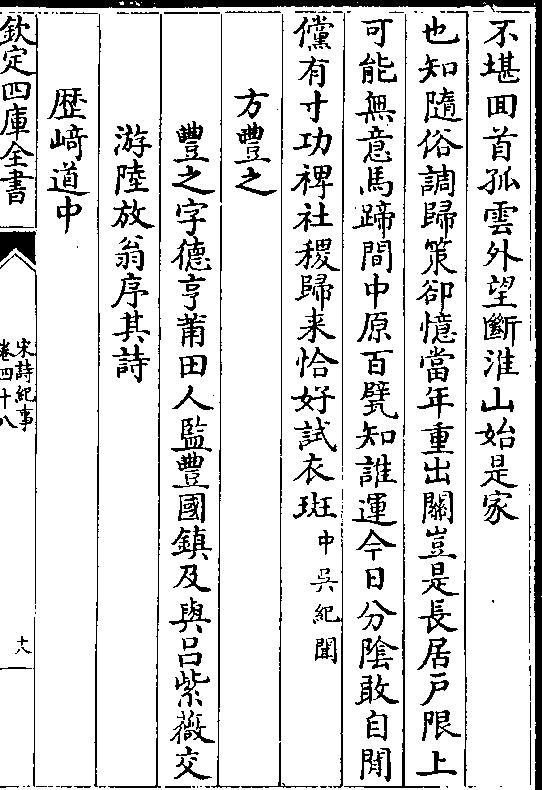 不堪回首孤雲外望斷淮山始是家
也知隨俗調歸策卻憶當年重出關豈是長居戸限上
可能無意馬蹄間中原百甓知誰運今日分陰敢自閒
儻有寸功禆社稷歸来恰好試衣斑中吳紀聞
方豐之
豐之字德亨莆田人監豐國鎮及與吕紫薇交
游陸放翁序其詩
歴﨑道中
欽定四庫全書
宋詩紀事
卷四十八
十八